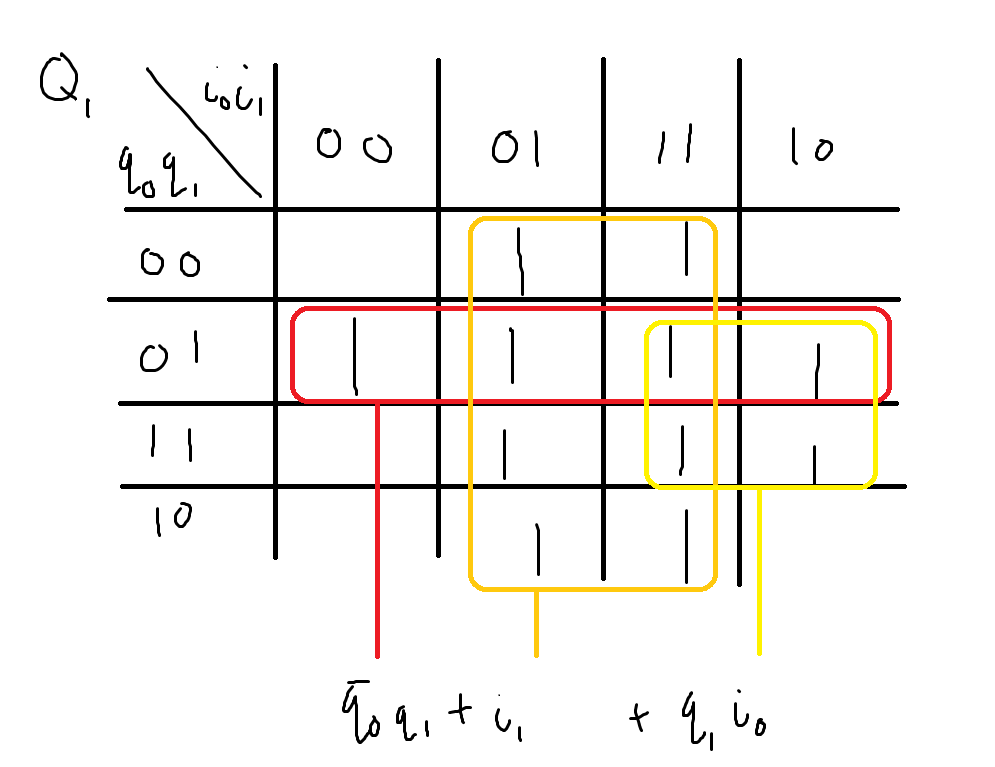 Q₁ i₀i₁
q₀q₁ 00 01 11 10
00 1 1
01 1 1 1 1
11 1 1 1
10 1 1
q̅₀q₁ + i₁ + q₁i₀